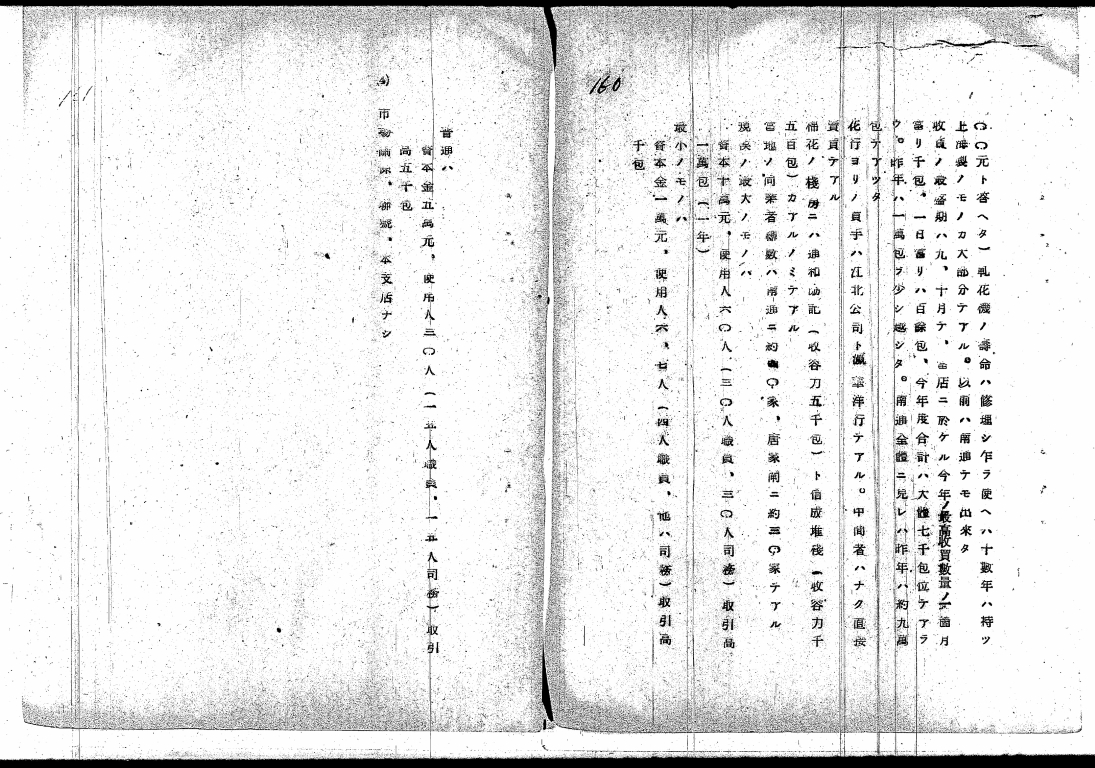 160
〇〇元ト答ヘタ）軋花機ノ壽命ハ修理シ乍ラ使ヘハ十數年ハ持ツ
上海製ノモノカ大部分テアル。以前ハ南通テモ出來タ
收買ノ最盛期ハ九、十月テ、當店ニ於ケル今年ノ最高收買數量ノ一箇月
當リ千包、一日當リハ百餘包、今年度合計ハ大體七千包位テアラ
ウ。昨年ハ一萬包ヲ少シ越シタ。南通全體ニ見レハ昨年ハ約九萬
包テアツタ
花行ヨリノ買手ハ江北公司ト洋行テアル。中間者ハナク直接
賣買テアル
棉花ノ棧房ニハ通和記（收容力五千包）ト信成堆棧（收容力千
五百包）カアルノミテアル
當地ノ同業者總數ハ南通ニ約〇家、唐家閘ニ約三〇家テアル
規模ノ最大ノモノハ
資本十萬元、使用人六〇人（三〇人職員、三〇人司務）取引高
一萬包（一年）
最小ノモノハ
資本金一萬元、使用人六、七人（四人職員、他ハ司務）取引高
千包
普通ハ
資本金五萬元、使用人三〇人（一五人職員、一五人司務）取引
高五千包
4) 市場關係、聯號、本支店ナシ